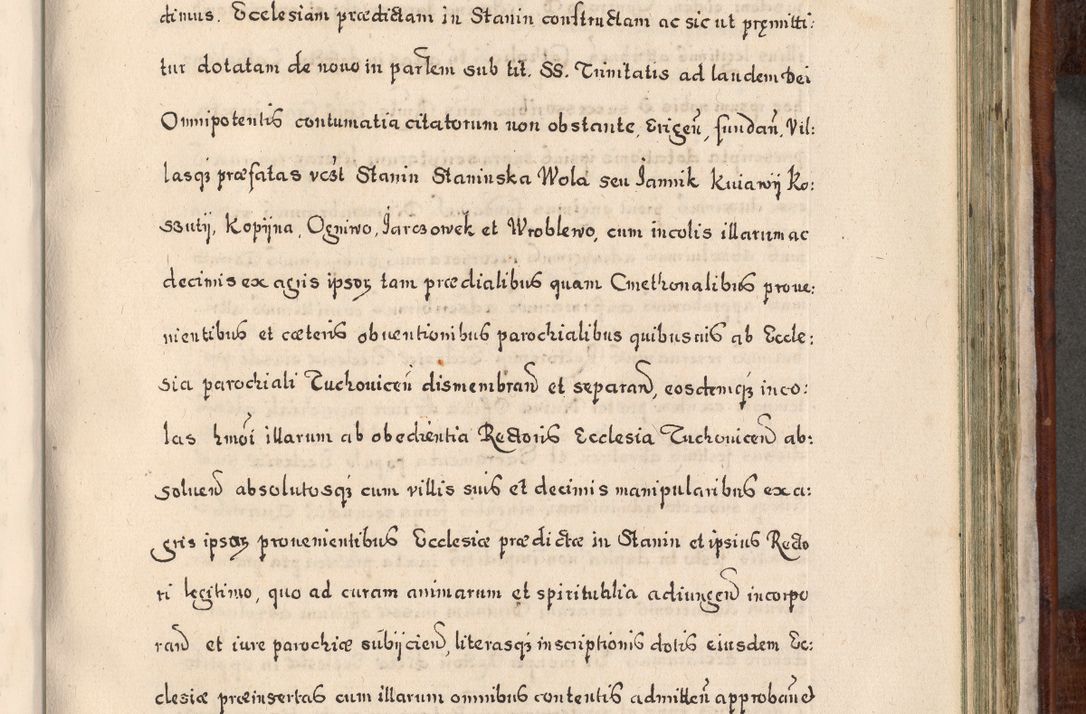 dimus. Ecclesiam prædictam in Stanin constructam ac sic ut pręmitti:
tur dotatam de nouo in partem sub tit. SS. Trinitatis ad laudem Dei
Omnipotentis contumatia citatorum non obstante, Erigeñ, fundañ, Vil:
lasqȝ præfatas vcȝt Stanin Staninska Wola seu Jannik Kuiawij Ko:
sȝutij, Kopijna, Ogniwo, Jarcȝowek et Wroblewo, cum incolis illarum ac
decimis ex agris ipsoꝝ tam prædialibus quam Cmethonalibus proue:
nientibus et cæteris obuentionibus parochialibus quibusuis ab Eccle:
sia parochiali Tuchouiceñ dismembrañ et separañ, eosdemqȝ inco:
las hmõi illarum ab obedientia Rectoris Ecclesia Tuchouiceñ ab:
solueñ absolutosqȝ cum villis suis et decimis manipularibus ex a:
gris ipsoꝝ prouenientibus Ecclesiæ prædictæ in Stanin et ipsius Recto
ri legitimo, quo ad curam animarum et spiritublia adiungeñ incorpo
rañ et iure parochiæ subijcieñ, literasqȝ inscriptionis dotis eiusdem Ec:
clesiæ præinsertas cum illarum omnibus contentis admitteñ approbañ